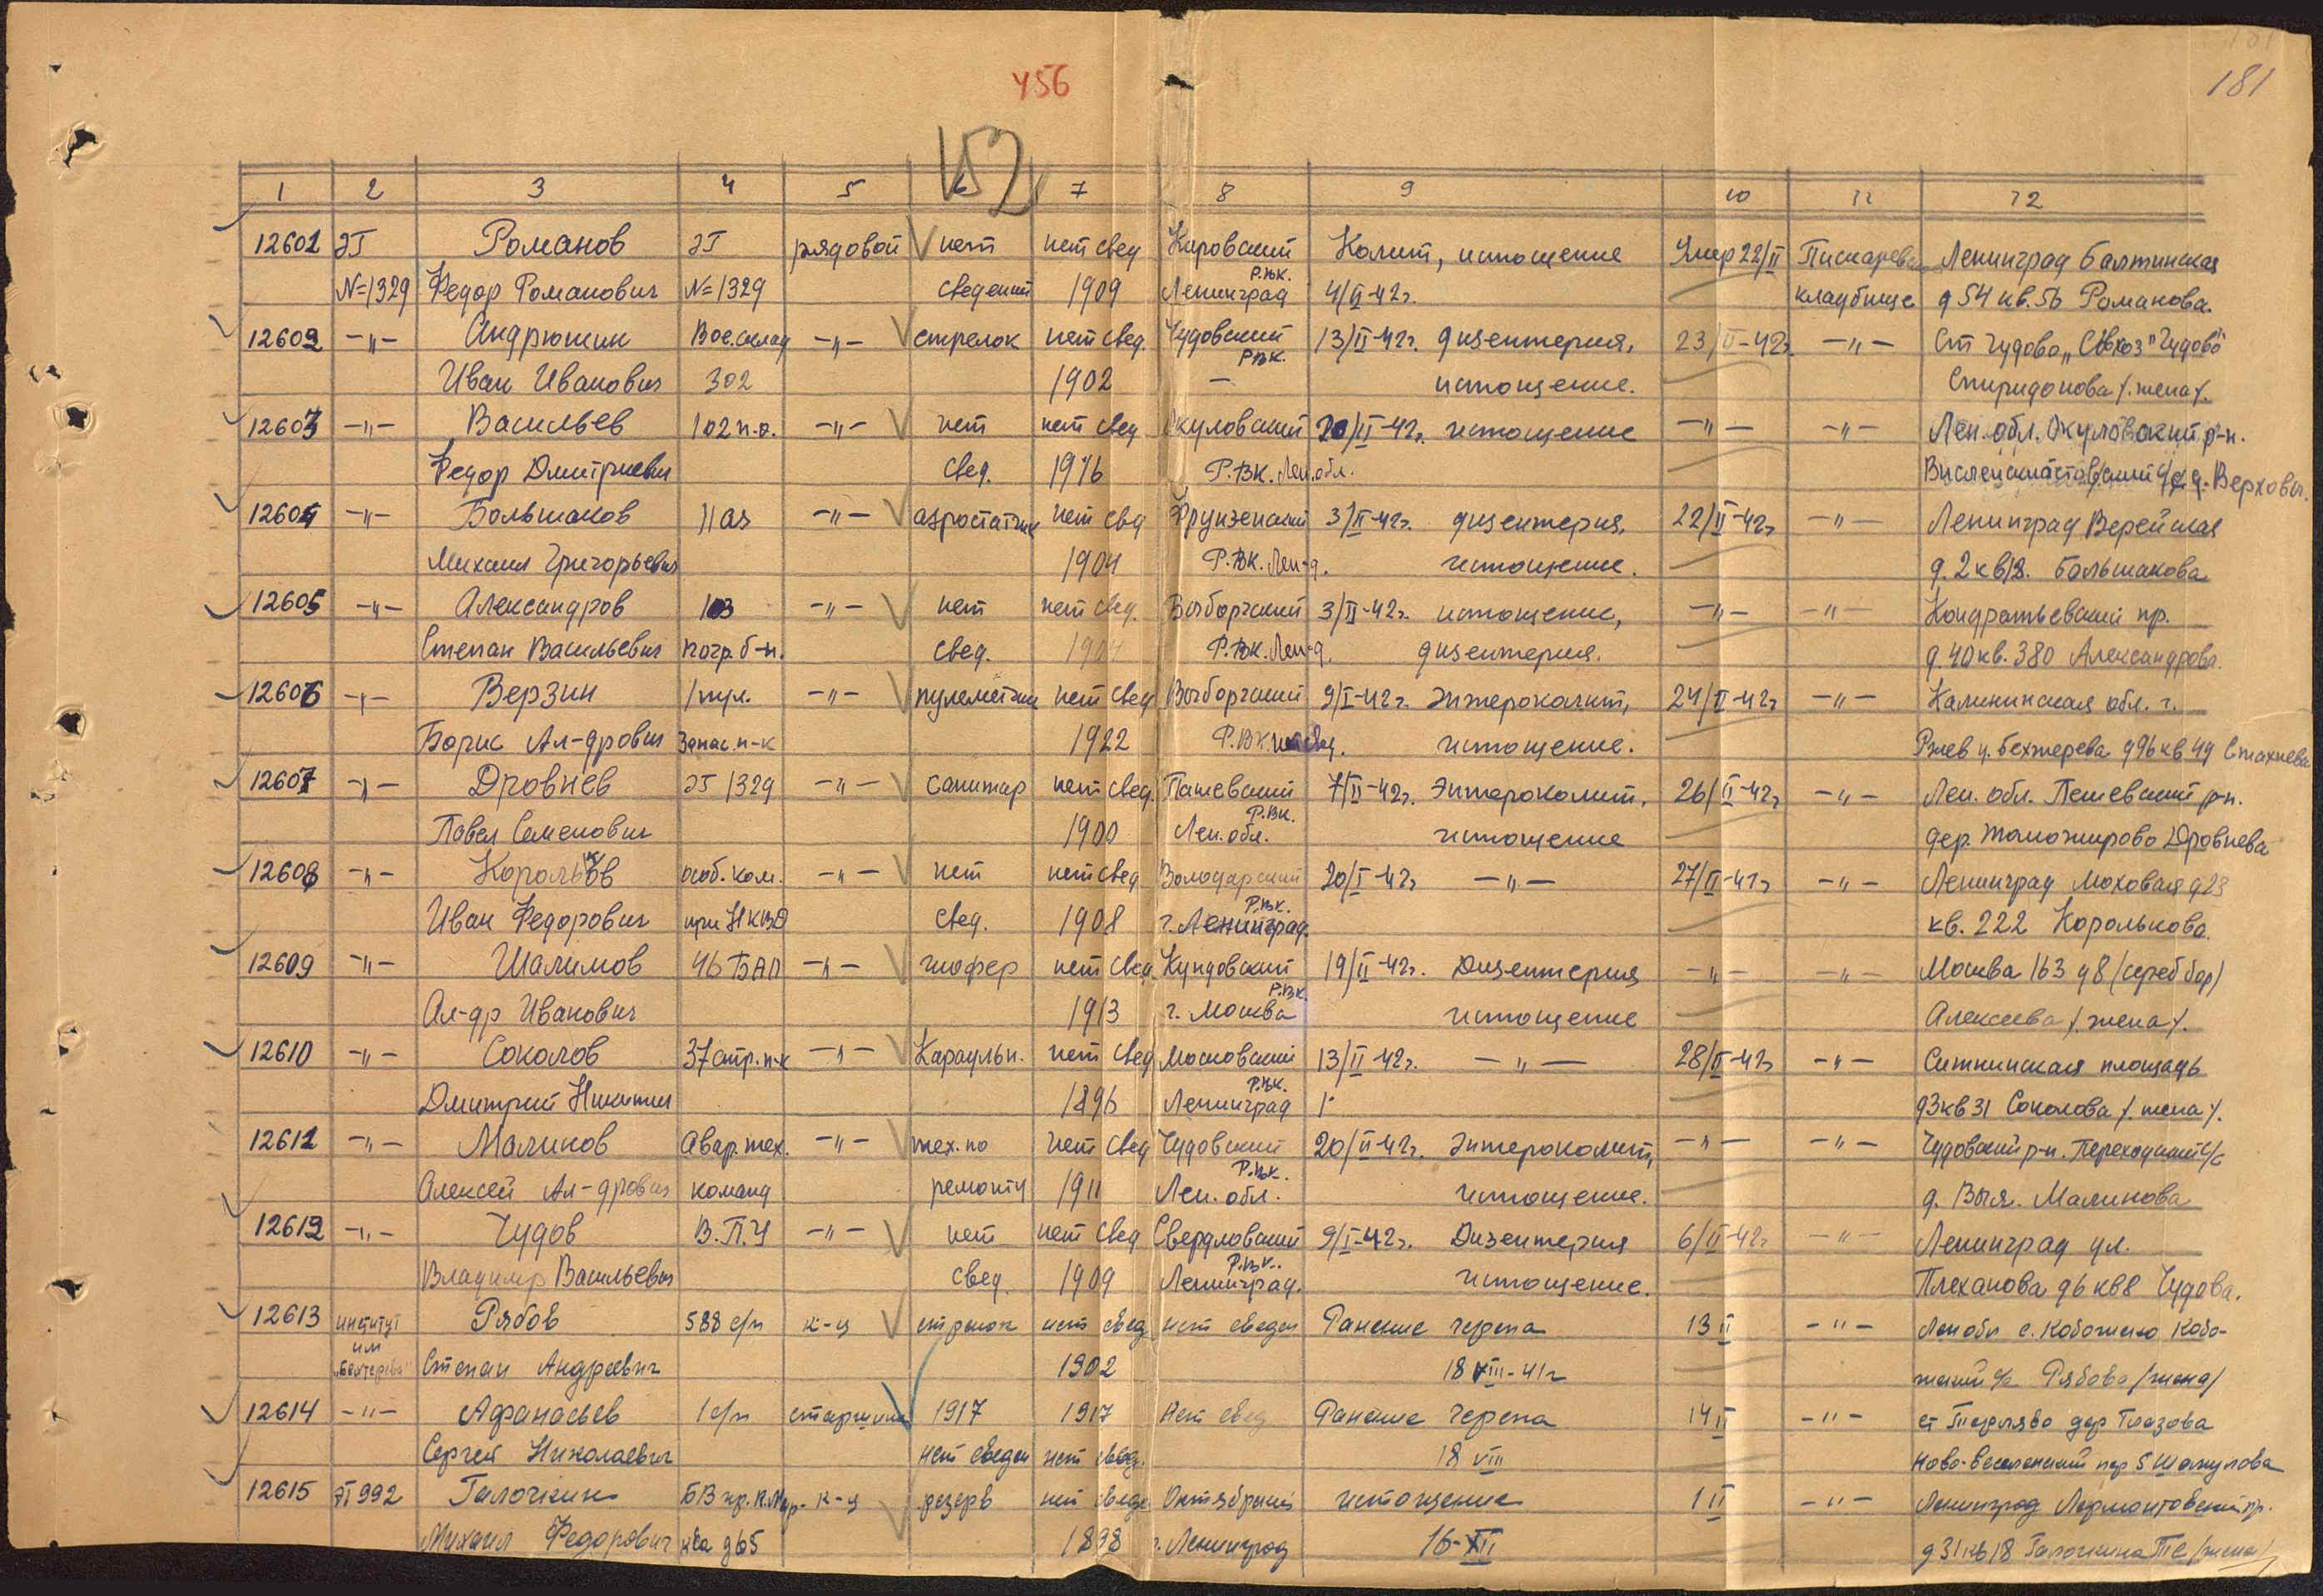 456
181
152
1 2 3 4 5 6 7 8 9 10 11 12
12601 ЭГ Романов ЭГ рядовой нет нет свед Кировский Колит, истощение Умер 22/II Пискарев Ленинград Балтийская
№1329 Федор Романович №1329 сведений 1909 Ленинград Р.В.К. 4/II-42г. кладбище д 54 кв. 56 Романова.
12602 -"- Андрюшин Вое.склад -"- стрелок нет свед. Чудовский 13/II-42г. дизентерия, 23/II-42г -"- Ст Чудово "Совхоз" Чудово
Иван Иванович 302 1902 РВК. - истощение. Спиридонова /.жена/.
12603 -"- Васильев 102 п.о. -"- нет нет свед Окуловский 20/II-42г. истощение -"- -"- Лен. обл. Окуловский р-н.
Федор Дмитриевич свед. 1916 Р.ВК. Лен.обл. д. Верховы.
12604 -"- Большаков 11 аз -"- аэростатчик нет свед Фрунзенский 3/II-42г. дизентерия, 22/II-42г -"- Ленинград Верейская
Михаил Григорьевич 1904 Р.ВК. Лен-д. истощение. д. 2 кв 18. Большакова
12605 -"- Александров 103 -"- нет нет свед. Выборгский 3/II-42г. истощение, -"- -"- Кондратьевский пр.
Степан Васильевич погр. б-н. свед. 1904 Р.ВК. Лен-д. дизентерия. д. 40 кв. 380 Александрова.
12606 -"- Верзин 1 пул. -"- пулеметчик нет свед Выборгский 9/I-42г. Энтероколит, 24/II-42г -"- Калининская обл. г.
Борис Ал-дрович Запас. п-к 1922 Р.ВК истощение. Ржев у. Бехтерева д 96 кв 49 Стахнева
12607 -"- Дровнев ЭГ 1329 -"- санитар нет свед. Пашевский 7/II-42г. Энтероколит, 26/II-42г -"- Лен. обл. Пешевский р-н.
Павел Семенович 1900 Лен. обл. Р.ВК. истощение дер. Манжирово Дровнева
12608 -"- Корольков особ. ком. -"- нет нет свед Володарский 20/I-42г -"- 27/II-42г -"- Ленинград Моховая д 23
Иван Федорович при НКВД свед. 1908 г. Ленинград. Р.ВК. кв. 222 Королькова.
12609 -"- Шалимов 46 БАО -"- шофер нет свед. Кунцовский 19/II-42г. Дизентерия -"- -"- Москва 163 д 8 (сереб бор)
Ал-др Иванович 1913 г. Москва Р.ВК. истощение Алексеева /.жена/.
12610 -"- Соколов 37 стр. п-к -"- Караульн. нет свед Московский 13/II-42г. -"- 28/II-42г -"- Ситнинская площадь
Дмитрий Никитич 1896 Ленинград Р.ВК. д 3 кв 31 Соколова /.жена/.
12611 -"- Малинов Авар. тех. -"- тех. по нет свед Чудовский 20/II-42г. Энтероколит, -"- -"- Чудовский р-н. Переходский с/с
Алексей Ал-дрович команд ремонту 1911 Лен. обл. Р.ВК. истощение. д. Выя. Малинова
12612 -"- Чудов В.П.Ч -"- нет нет свед Свердловский 9/I-42г. Дизентерия 6/II-42г -"- Ленинград ул.
Владимир Васильевич свед. 1909 Ленинград. Р.ВК.. истощение. Плеханова д 6 кв 8 Чудова.
12613 институт Рябов 588 с/п к-ц стрелок нет свед нет сведен Ранение черепа 13 II -"- Лен обл с. Кобожено Кобо-
им "Бехтерева" Степан Андреевич 1902 18 VIII-41г жский с/с Рябова /жена/
12614 -"- Афанасьев 1 с/п старшина 1917 1917 Нет свед Ранение черепа 14 II -"- ст дер Глазова
Сергей Николаевич нет сведен нет свед. 18 VIII Ново-Веселенский пер 5 Шакулова
12615 ЭГ 992 Галочкин БВ пр. к-ц резерв нет сведе Октябрьский истощение 1 II -"- Ленинград Лермонтовский пр.
Михаил Федорович ква д 65 1898 г. Ленинград 16-XII д 31 кв 18 Галочкина /жена/